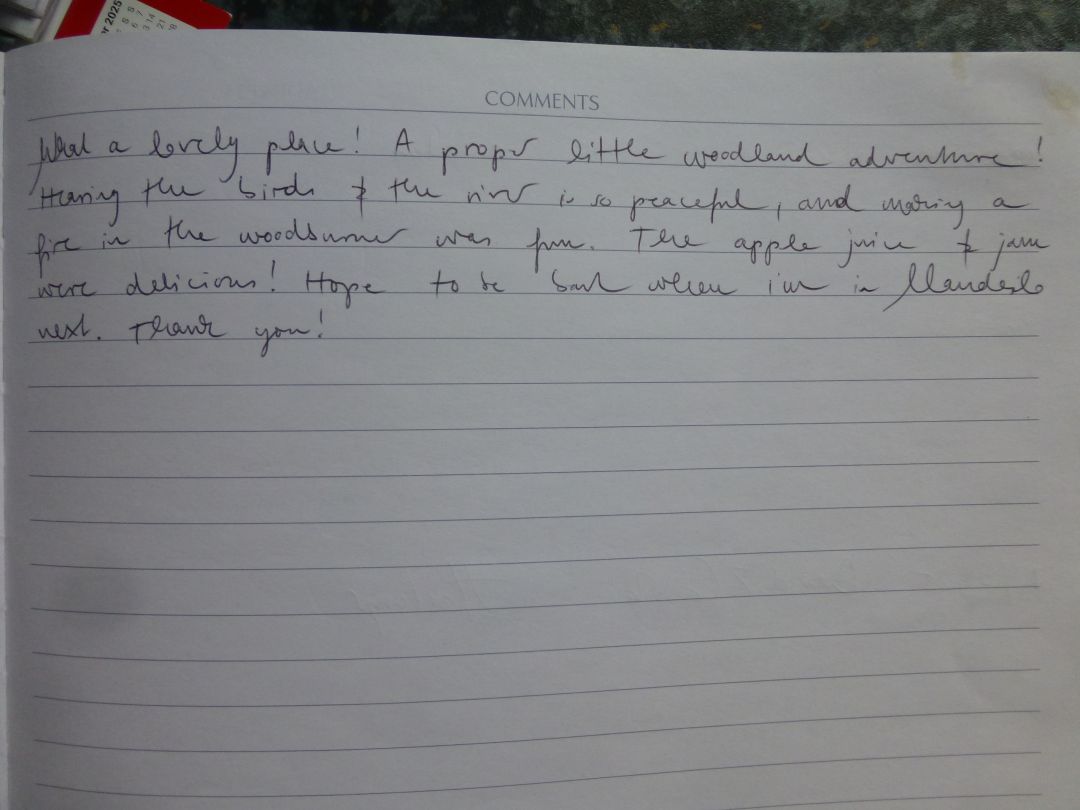 r 2025
S S
6 7
13 14
21
28
COMMENTS
What a lovely place! A proper little woodland adventure!
Hearing the birds & the river is so peaceful, and making a
fire in the woodburner was fun. The apple juice & jam
were delicious! Hope to be back when i'm in Llandeilo
next. Thank you!